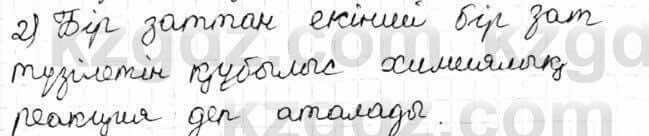 2) Бір заттан екінші бір зат
түзілетін құбылыс химиялық
реакция деп аталады.